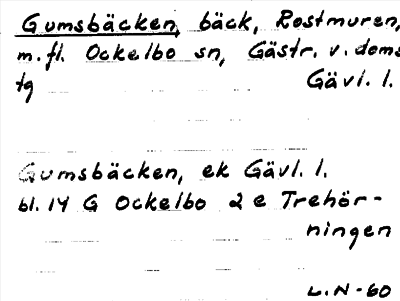 Gumsbäcken, bäck, Rostmuren,
m.fl. Ockelbo sn, Gästr. v. doms
tg Gävl. l.
Gumsbäcken, ek Gävl. l.
bl. 14 G Ockelbo 2 e Trehör-
ningen
L.N-60